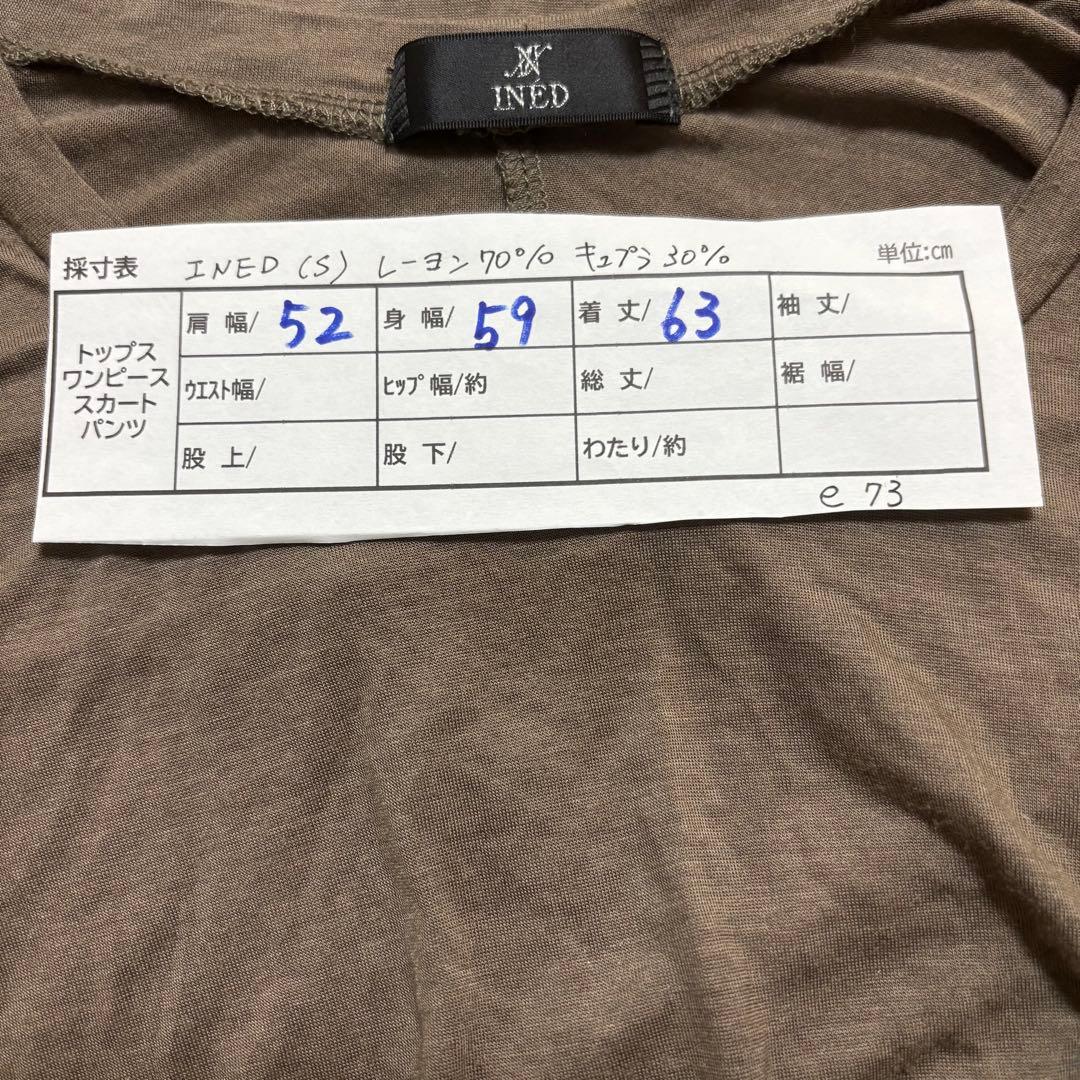 INED
採寸表 INED (S) レーヨン70% キュプラ30% 単位:cm
トップス
ワンピース
スカート
パンツ
肩 幅/ 52 身 幅/ 59 着 丈/ 63 袖 丈/
ウエスト幅/ ヒップ幅/約 総 丈/ 裾 幅/
股 上/ 股 下/ わたり/約
e 73